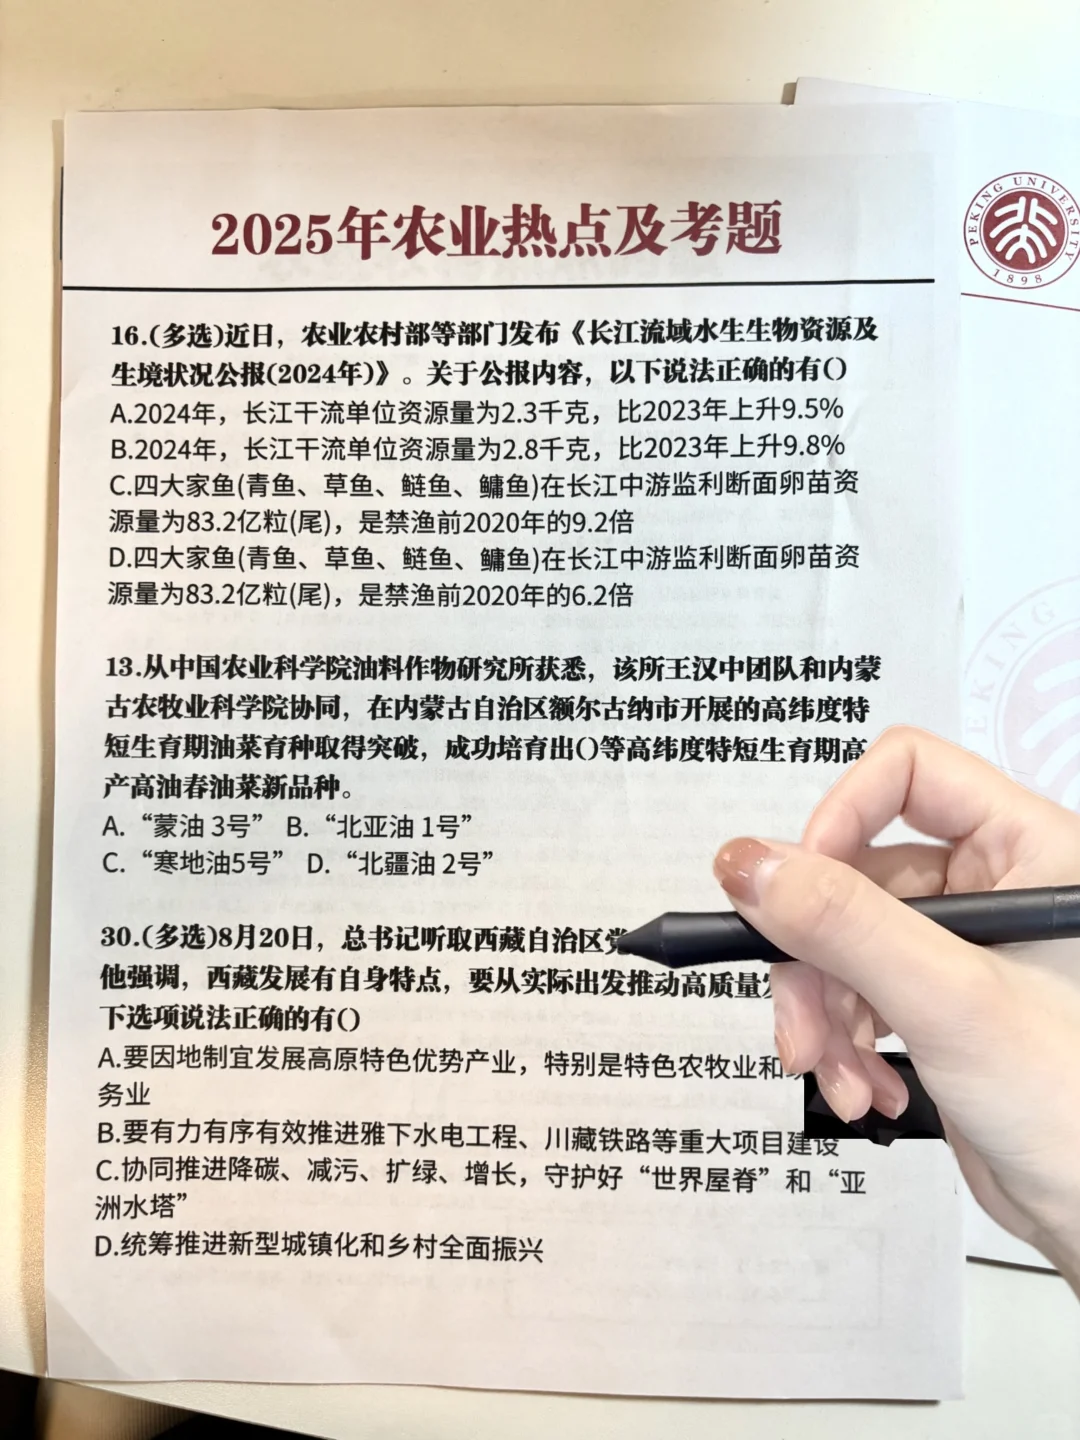 2025年农业热点及考题
PEKING UNIVERSITY
1898
16.(多选)近日，农业农村部等部门发布《长江流域水生生物资源及
生境状况公报(2024年)》。关于公报内容，以下说法正确的有()
A.2024年，长江干流单位资源量为2.3千克，比2023年上升9.5%
B.2024年，长江干流单位资源量为2.8千克，比2023年上升9.8%
C.四大家鱼(青鱼、草鱼、鲢鱼、鳙鱼)在长江中游监利断面卵苗资
源量为83.2亿粒(尾)，是禁渔前2020年的9.2倍
D.四大家鱼(青鱼、草鱼、鲢鱼、鳙鱼)在长江中游监利断面卵苗资
源量为83.2亿粒(尾)，是禁渔前2020年的6.2倍
13.从中国农业科学院油料作物研究所获悉，该所王汉中团队和内蒙
古农牧业科学院协同，在内蒙古自治区额尔古纳市开展的高纬度特
短生育期油菜育种取得突破，成功培育出()等高纬度特短生育期高
产高油春油菜新品种。
A.“蒙油 3号” B.“北亚油 1号”
C.“寒地油5号” D.“北疆油 2号”
30.(多选)8月20日，总书记听取西藏自治区党
他强调，西藏发展有自身特点，要从实际出发推动高质量
下选项说法正确的有()
A.要因地制宜发展高原特色优势产业，特别是特色农牧业和
务业
B.要有力有序有效推进雅下水电工程、川藏铁路等重大项目建设
C.协同推进降碳、减污、扩绿、增长，守护好“世界屋脊”和“亚
洲水塔”
D.统筹推进新型城镇化和乡村全面振兴